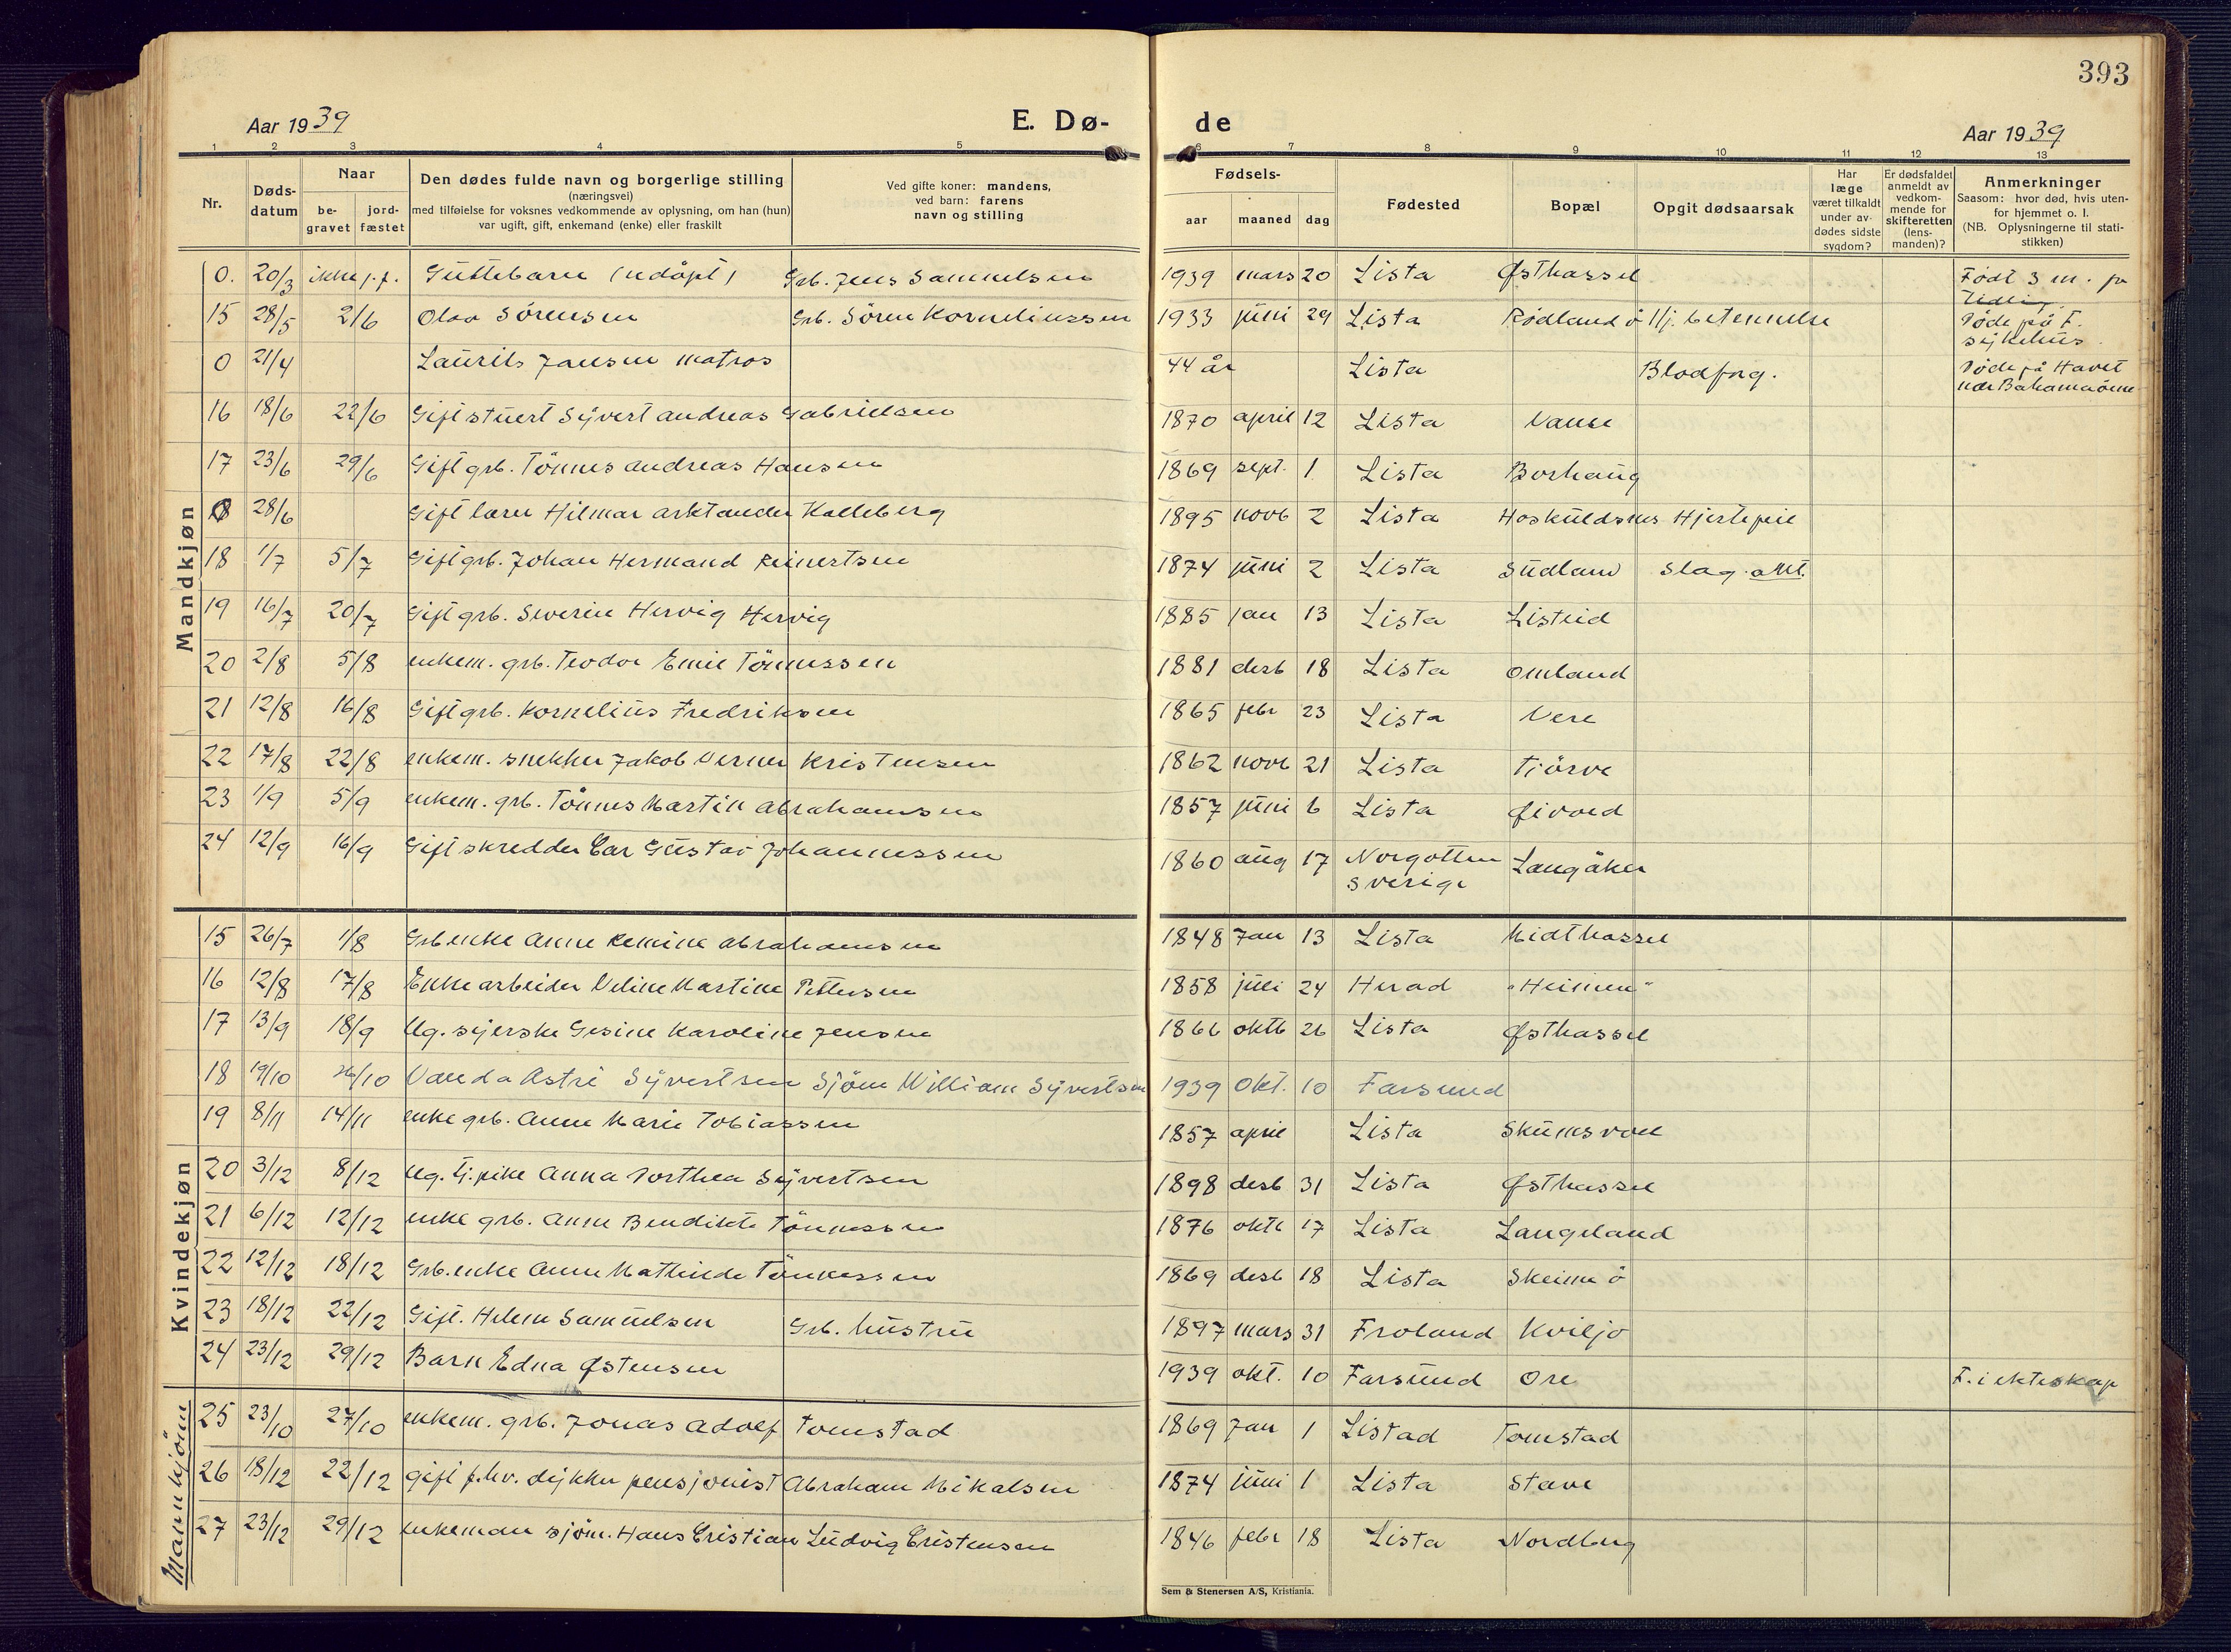 393
Aar 1939 E. Dø- de Aar 1939
1 2 3 4 5 6 7 8 9 10 11 12 13
Nr.
Døds-
datum
Naar
be-
gravet
jord-
fæstet
Den dødes fulde navn og borgerlige stilling
(næringsvei)
med tilføielse for voksnes vedkommende av oplysning, om han (hun)
var ugift, gift, enkemand (enke) eller fraskilt
Ved gifte koner: mandens,
ved barn: farens
navn og stilling
Fødsels-
aar maaned dag
Fødested
Bopæl
Opgit dødsaarsak
Har
læge
været tilkaldt
under av-
dødes sidste
sygdom?
Er dødsfaldet
anmeldt av
vedkom-
mende for
skifteretten
(lens-
manden)?
Anmerkninger
Saasom: hvor død, hvis uten-
for hjemmet o. l.
(NB. Oplysningerne til stati-
stikken)
Mandkjøn
0. 20/3 ikke j.f. Guttebarn (udøpt) Grb. Jens Samuelsen 1939 mars 20 Lista Østhassel Født 3 m. for
tidlig.
15 28/5 2/6 Olav Sörensen Grb. Sören Korneliussen 1933 juni 29 Lista Rødland ö Hj. betennelse Døde på F.
sykehus.
0 21/4 Laurits Jansen matros 44 år Lista Blodforg. Døde på Havet
nær Bahamaöene
16 18/6 22/6 Gift stuert Syvert Andreas Gabrielsen 1870 april 12 Lista Vanse
17 23/6 29/6 Gift grb. Tönnes Andreas Hansen 1869 sept. 1 Lista Borhaug
0 28/6 Gift lærer Hilmar Arktander Kalleberg 1895 novb 2 Lista Hoskuldsnes Hjertefeil
18 1/7 5/7 Gift grb. Johan Hermand Reinertsen 1874 juni 2 Lista Sudland Slag. akt.
19 16/7 20/7 Gift grb. Severin Hervig Hervig 1885 jan 13 Lista Listeid
20 2/8 5/8 enkem. grb. Teodor Emil Tönnessen 1881 desb 18 Lista Omland
21 12/8 16/8 Gift grb. Kornelius Fredriksen 1865 febr 23 Lista Vere
22 17/8 22/8 enkem. snekker Jakob Verner Kristensen 1862 novb 21 Lista Tjörve
23 1/9 5/9 enkem. grb. Tönnes Martin Abrahamsen 1857 juni 6 Lista Øivold
24 12/9 16/9 Gift skredder Car Gustav Johannessen 1860 aug 17 Norgotten Langåker
Sverige
Kvindekjøn
15 26/7 1/8 Grb enke Anne Remine Abrahamsen 1848 Jan 13 Lista Midthassel
16 12/8 17/8 Enke arbeider Veline Martine Pettersen 1858 juli 24 Herad "Heimen"
17 13/9 18/9 Ug. syerske Gesine Karoline Jensen 1866 oktb 26 Lista Østhassel
18 19/10 26/10 Vanda Astri Syvertsen Sjöm William Syvertsen 1939 Okt. 10 Farsund
19 8/11 14/11 enke grb. Anne Marie Tobiassen 1857 april Lista Skumsvoll
20 3/12 8/12 Ug. tj.pike Anna Dorthea Syvertsen 1898 desb 31 Lista Østhassel
21 6/12 12/12 enke grb. Anne Bendikte Tönnessen 1876 oktb 17 Lista Langeland
22 12/12 18/12 Grb. enke Anne Mathilde Tönnessen 1869 desb 18 Lista Skeime ö
23 18/12 22/12 Gift. Helene Samuelsen Grb. hustru 1897 mars 31 Froland Kviljo
24 23/12 29/12 Barn Edna Østensen 1939 okt. 10 Farsund Ore F. i ekteskap
Mannkjönn
25 23/10 27/10 enkem. grb. Jonas Adolf Tomstad 1869 Jan 1 Listad Tomstad
26 18/12 22/12 gift f.hv. dykker pensjonist Abraham Mikalsen 1874 juni 1 Lista Stave
27 23/12 29/12 enkeman sjöm. Hans Cristian Ludvig Cristensen 1846 febr 18 Lista Nordberg
Sem & Stenersen A/S, Kristiania.